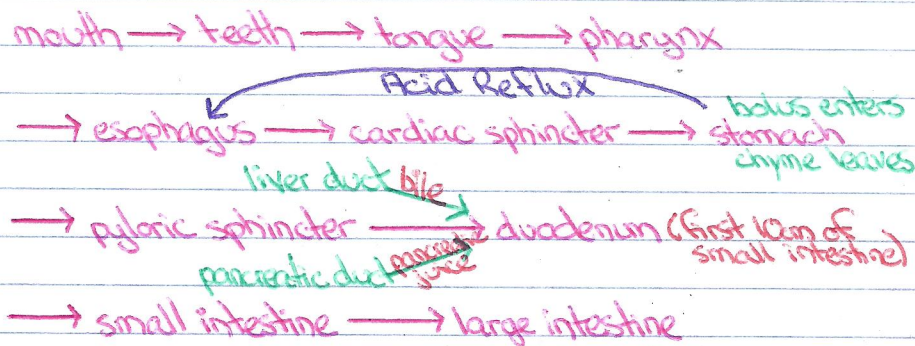 mouth → teeth → tongue → pharynx
Acid Reflux
bolus enters
→ esophagus → cardiac sphincter → stomach
chyme leaves
liver duct bile
→ pyloric sphincter → duodenum (first 10cm of
small intestine)
pancreatic duct pancreatic
juice
→ small intestine → large intestine